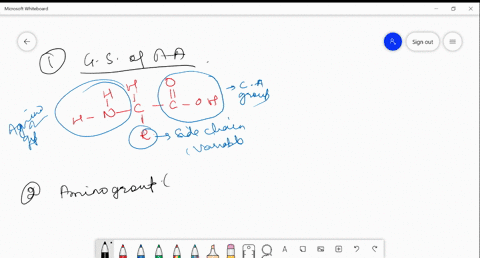 Microsoft Whiteboard
Sign out
① G.S. of AA
H H O
H - N - C - C - OH
R
Amino gp
→ C.A group
→ Side chain (Variable
② Amino group (
A